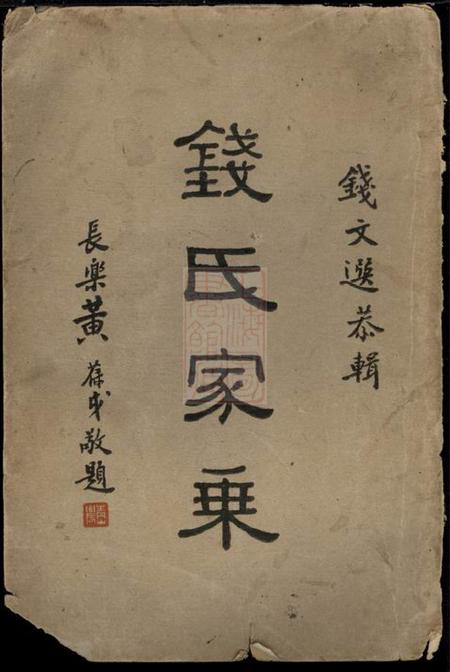 錢文選恭輯
錢氏家乘
長樂黃葆戉敬題